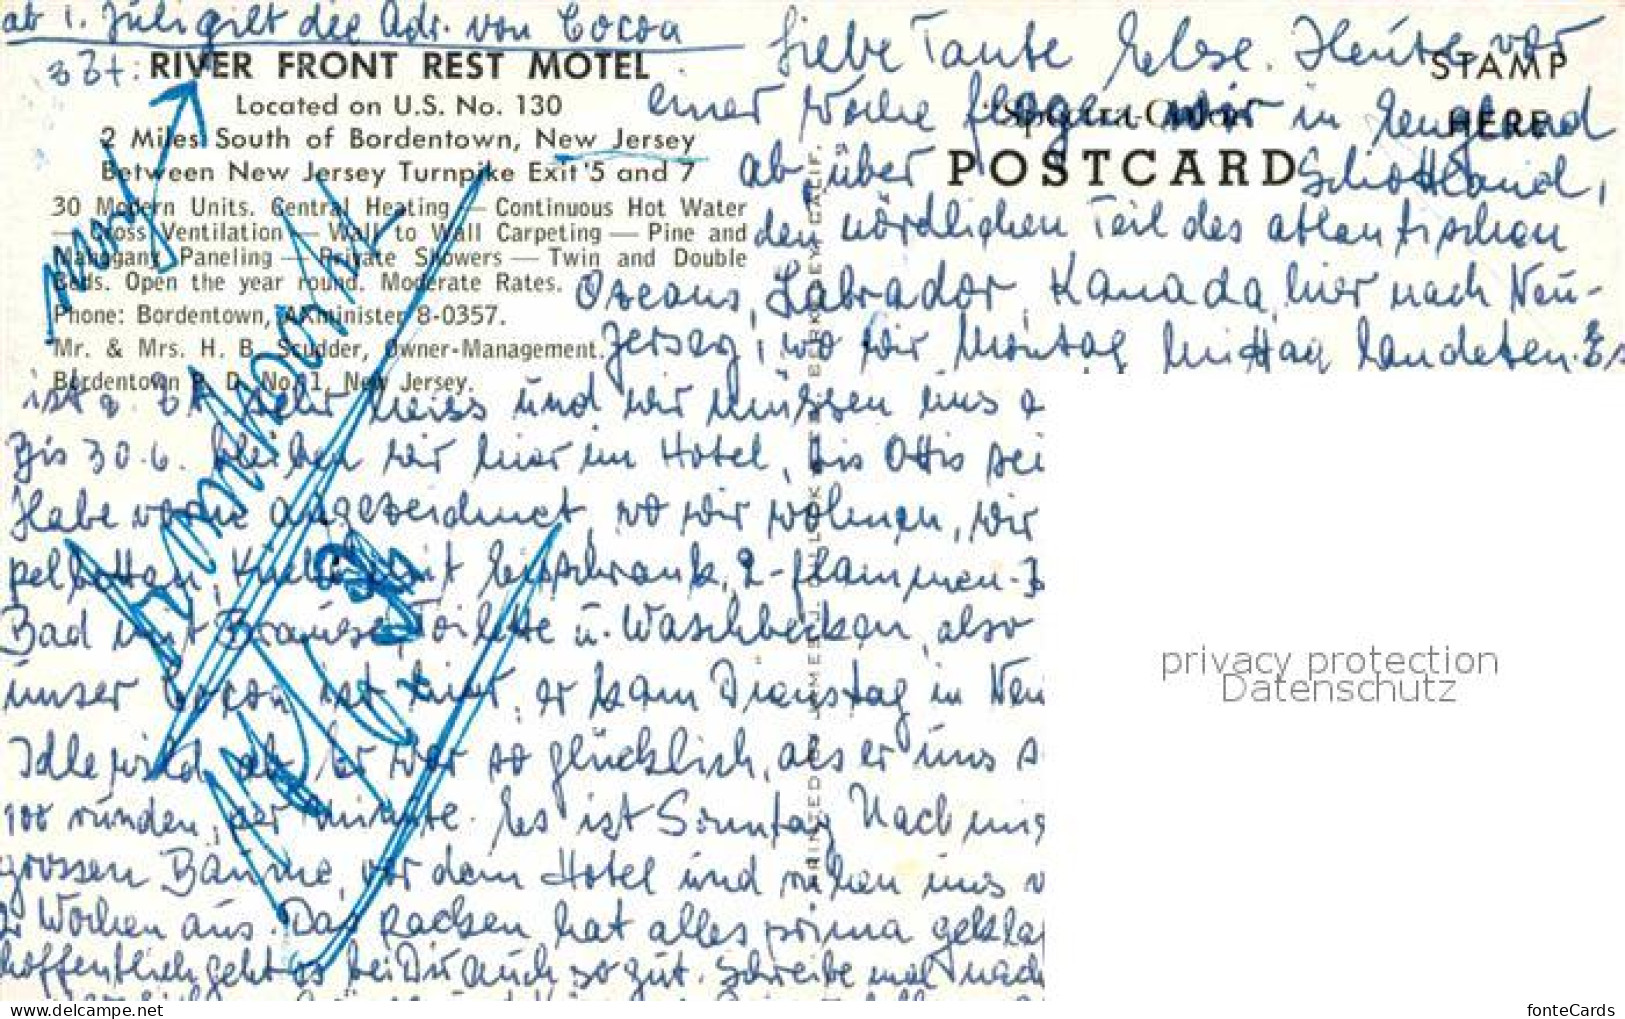 ab 1. Juli gilt die Adr. von Cocoa
z. Zt: RIVER FRONT REST MOTEL
Located on U.S. No. 130
2 Miles South of Bordentown, New Jersey
Between New Jersey Turnpike Exit 5 and 7
30 Modern Units. Central Heating — Continuous Hot Water
— Cross Ventilation — Wall to Wall Carpeting — Pine and
Mahogany Paneling — Private Showers — Twin and Double
Beds. Open the year round. Moderate Rates.
Phone: Bordentown, AXminister 8-0357.
Mr. & Mrs. H. B. Scudder, Owner-Management.
Bordentown R. D. No. 1, New Jersey.
STAMP
HERE
POSTCARD
Liebe Tante Else. Heute vor
einer Woche flogen wir in England
ab, über Schottland,
den nördlichen Teil des atlantischen
Ozeans, Labrador, Kanada, hier nach Neu-
Jersey, wo wir Montag Mittag landeten. Es
ist z. Zt sehr heiss und wir müssen uns
Bis 30.6. bleiben wir hier im Hotel, bis Ottis
Habe vorne angezeichnet, wo wir wohnen, wir
pelbetten, Küche mit Eisschrank, 2-flammen-
Bad mit Brause, Toilette u. Waschbecken, also
unser Cocoa ist hier, er kam Dienstag in
Idlewild ab. Er war so glücklich, als er uns
100 runden, per minute. Es ist Sonntag Nachmi
grossen Bäume, vor dem Hotel und ruhen uns
Wochen aus. Das packen hat alles prima gekla
hoffentlich geht es bei Dir auch so gut. Schreibe mal nach
New York
privacy protection
Datenschutz
www.delcampe.net
fonteCards